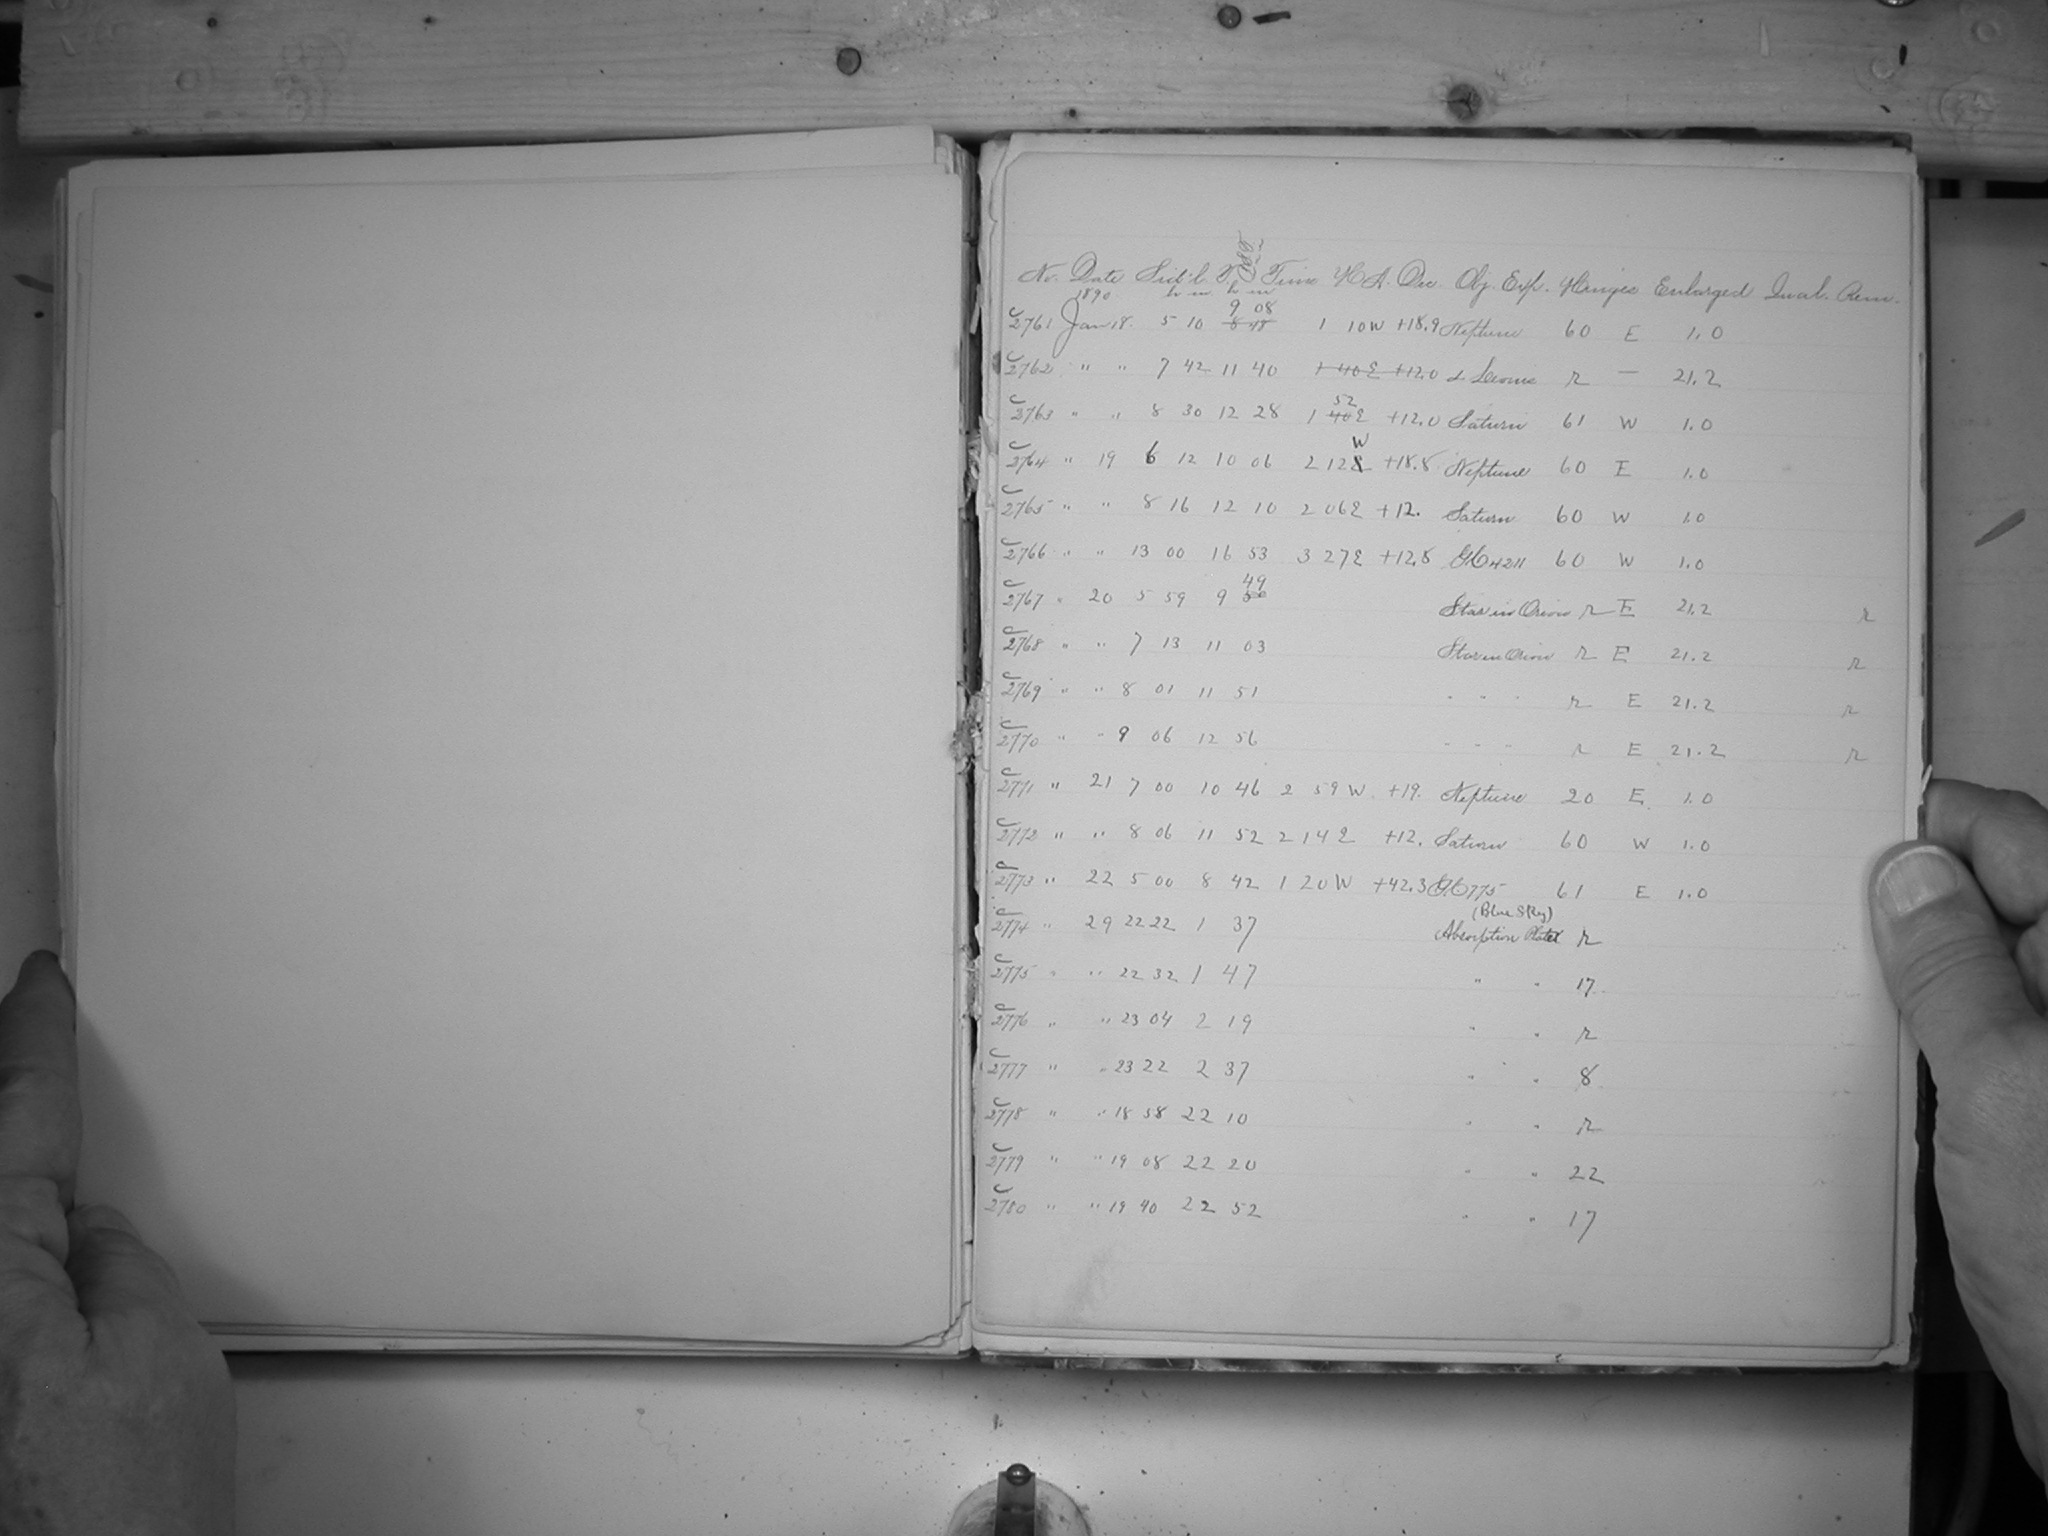 No. Date Sid'l T. Time H.A. Dec. Obj. Exp. Hinges Enlarged Qual. Rem.
1890. h m h m
9 08
C 2761 Jan 18. 5 10 8 48 1 10 W +18.9 Neptune 60 E 1.0
C 2762 " " 7 42 11 40 1 40 E +12.0 α Leonis r — 21.2
52
C 2763 " " 8 30 12 28 1 40 E +12.0 Saturn 61 W 1.0
W
C 2764 " 19 6 12 10 06 2 12 E +18.8 Neptune 60 E 1.0
C 2765 " " 8 16 12 10 2 06 E +12. Saturn 60 W 1.0
C 2766 " " 13 00 16 53 3 27 E +12.8 G.C. 4211 60 W 1.0
49
C 2767 " 20 5 59 9 Star in Orion r E 21.2 r
C 2768 " " 7 13 11 03 Star in Orion r E 21.2 r
C 2769 " " 8 01 11 51 " " " r E 21.2 r
C 2770 " " 9 06 12 56 " " " r E 21.2 r
C 2771 " 21 7 00 10 46 2 59 W. +19. Neptune 20 E. 1.0
C 2772 " " 8 06 11 52 2 14 E +12. Saturn 60 W 1.0
C 2773 " 22 5 00 8 42 1 20 W +42.3 G.C. 775 61 E 1.0
(Blue Sky)
C 2774 " 29 22 22 1 37 Absorption Plate r
C 2775 " " 22 32 1 47 " " 17
C 2776 " " 23 04 2 19 " " r
C 2777 " " 23 22 2 37 " " 8
C 2778 " " 18 58 22 10 " " r
C 2779 " " 19 08 22 20 " " 22
C 2780 " " 19 40 22 52 " " 17